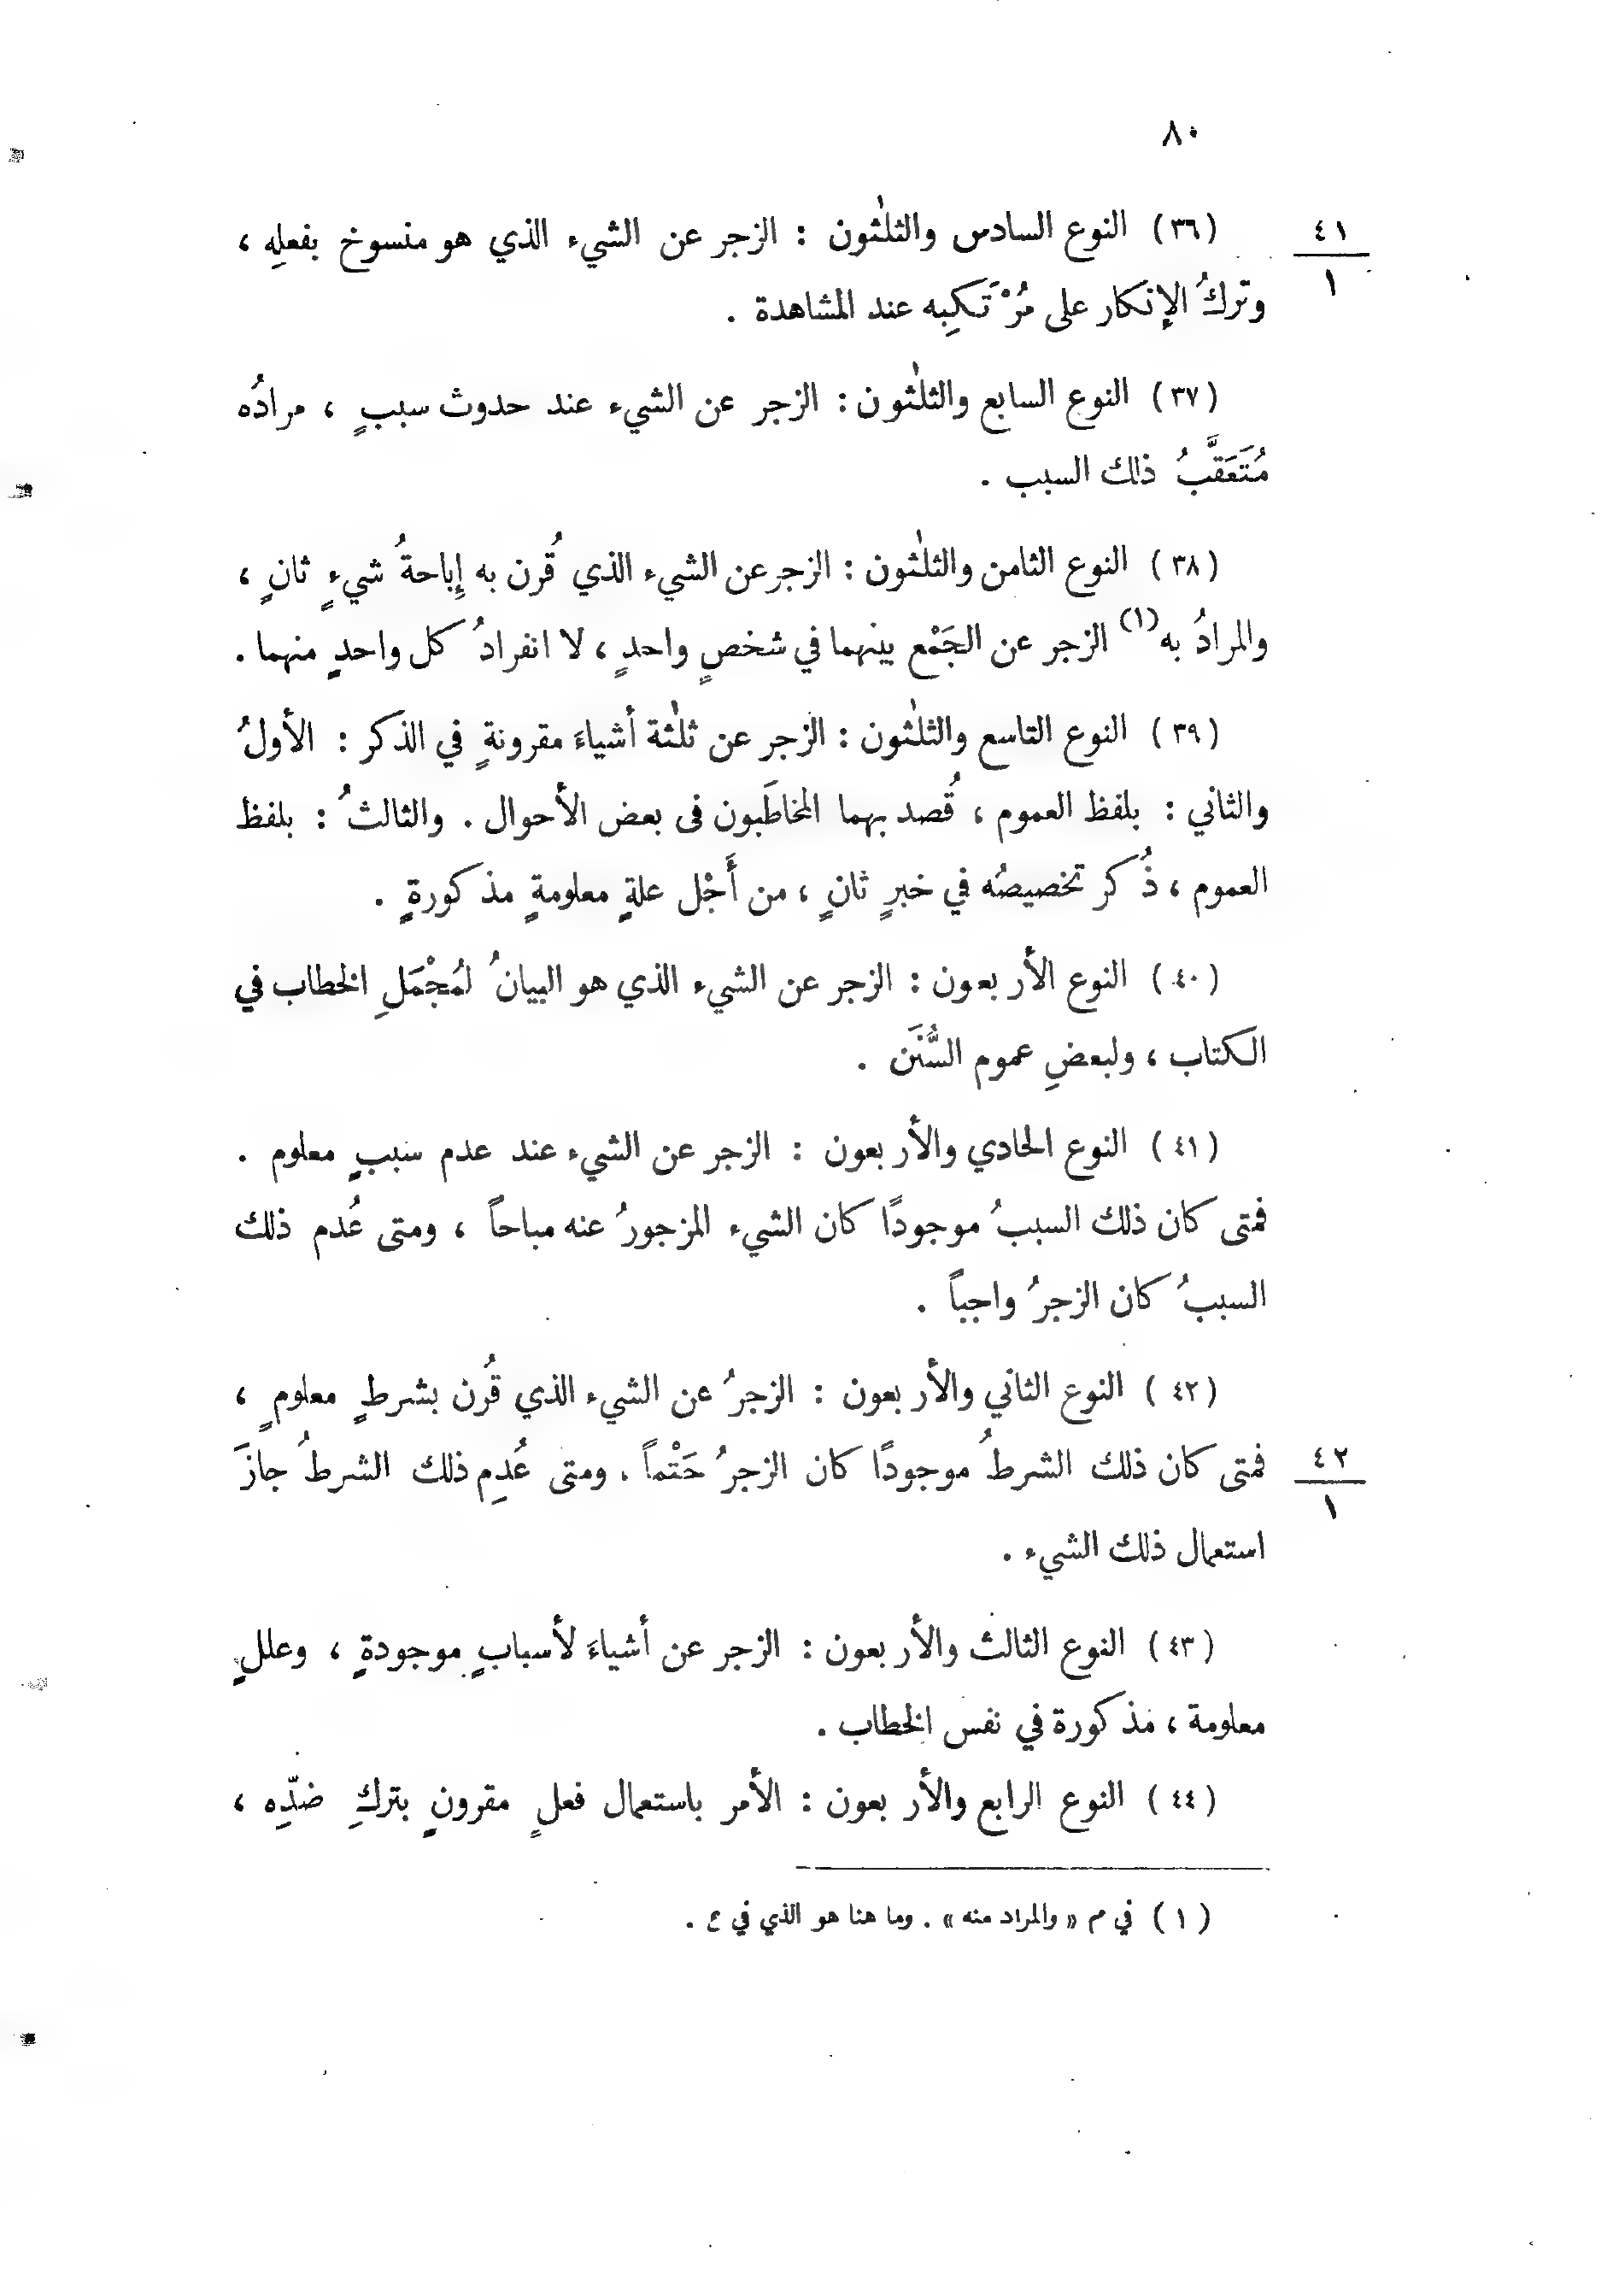 ٨٠
٤١
١
(٣٦) النوع السادس والثلٰثون : الزجر عن الشيء الذي هو منسوخ بفعلِه ،
وتركُ الإنكار على مُرْتَكِبه عند المشاهدة .
(٣٧) النوع السابع والثلٰثون : الزجر عن الشيء عند حدوث سببٍ ، مرادُه
مُتَعَقَّبُ ذلك السبب .
(٣٨) النوع الثامن والثلٰثون : الزجر عن الشيء الذي قُرن به إِباحةُ شيءٍ ثانٍ ،
والمرادُ به(١) الزجر عن الجَمْع بينهما في شخصٍ واحدٍ ، لا انفرادُ كل واحدٍ منهما .
(٣٩) النوع التاسع والثلٰثون : الزجر عن ثلٰثة أشياءَ مقرونةٍ في الذكر : الأولُ
والثاني : بلفظ العموم ، قُصد بهما المخاطَبون فى بعض الأحوال . والثالثُ : بلفظ
العموم ، ذُكر تخصيصُه في خبرٍ ثانٍ ، من أَجْل علةٍ معلومةٍ مذكورةٍ .
(٤٠) النوع الأربعون : الزجر عن الشيء الذي هو البيانُ لمُجْمَلِ الخطاب في
الكتاب ، ولبعضِ عموم السُّنَن .
(٤١) النوع الحادي والأربعون : الزجر عن الشيء عند عدم سببٍ معلوم .
فمتى كان ذلك السببُ موجودًا كان الشيء المزجورُ عنه مباحاً ، ومتى عُدم ذلك
السببُ كان الزجرُ واجباً .
(٤٢) النوع الثاني والأربعون : الزجرُ عن الشيء الذي قُرن بشرطٍ معلومٍ ،
٤٢
١
فمتى كان ذلك الشرطُ موجودًا كان الزجرُ حَتْماً . ومتى عُدِم ذلك الشرطُ جازَ
استعمال ذلك الشيء .
(٤٣) النوع الثالث والأربعون : الزجر عن أشياءَ لأسبابٍ موجودةٍ ، وعللٍ
معلومة ، مذكورة في نفس الخطاب .
(٤٤) النوع الرابع والأربعون : الأمر باستعمال فعلٍ مقرونٍ بتركِ ضدِّه ،
(١) في م «والمراد منه» . وما هنا هو الذي في ع .